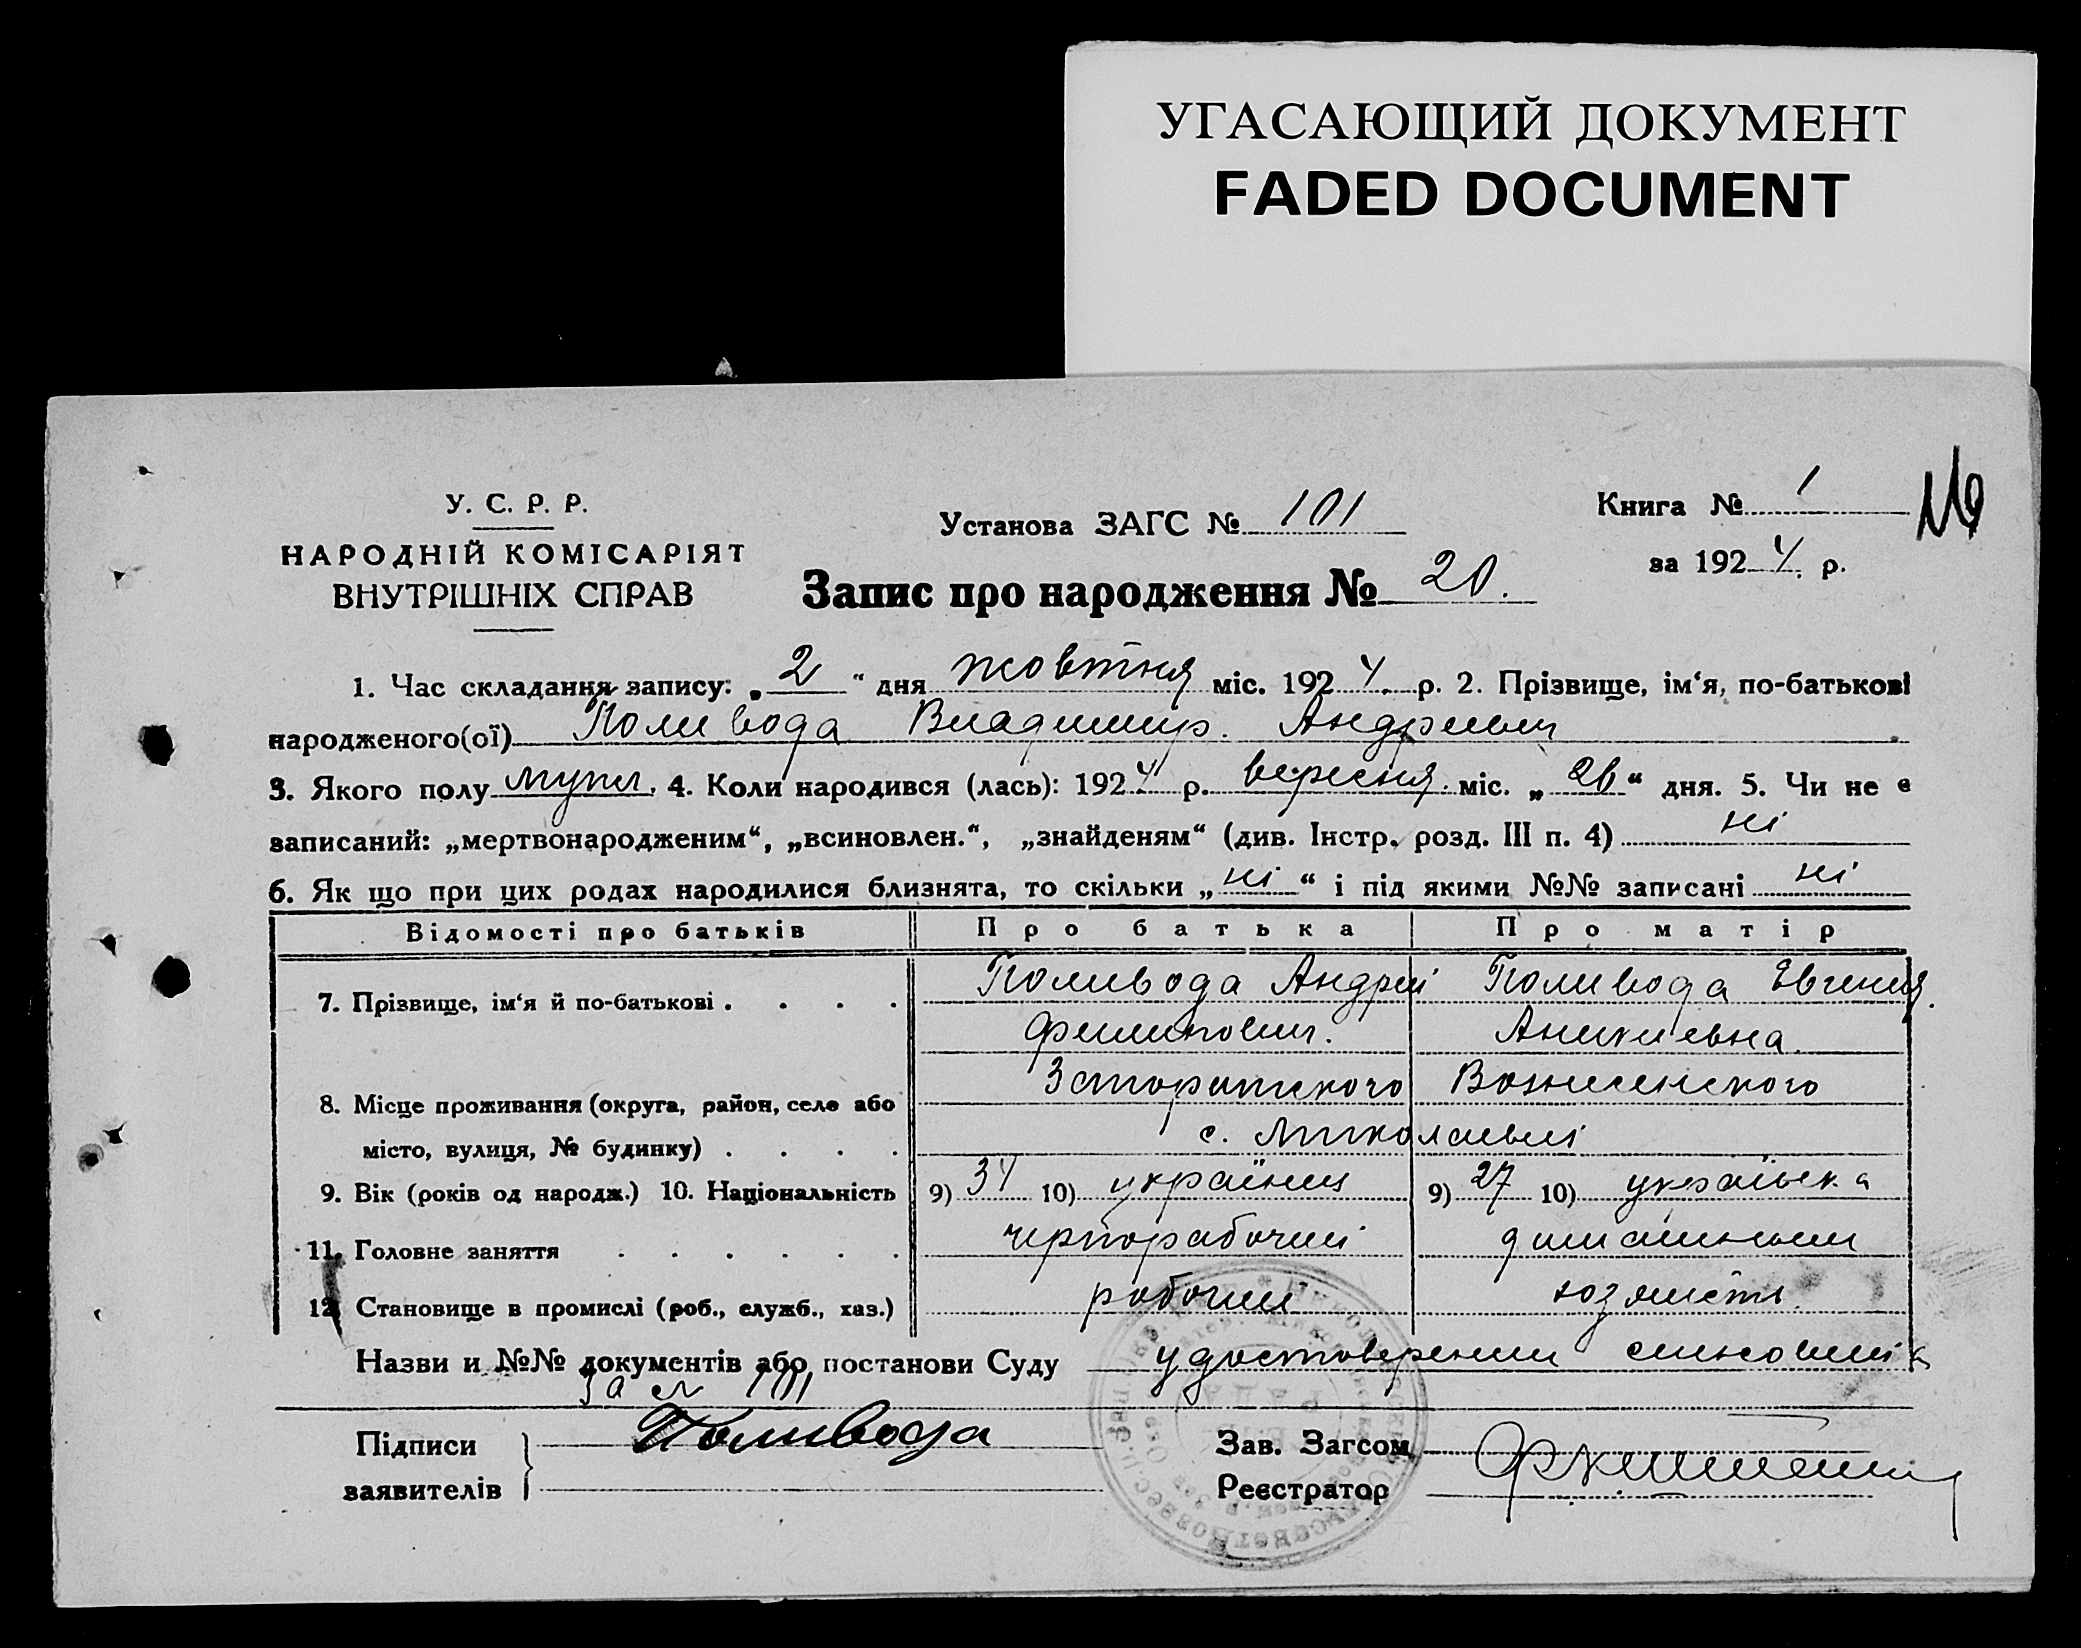 УГАСАЮЩИЙ ДОКУМЕНТ
FADED DOCUMENT
У. С. Р. Р.
НАРОДНІЙ КОМІСАРІЯТ
ВНУТРІШНІХ СПРАВ
Установа ЗАГС № 101
Книга № 1
за 1924 р.
Запис про народження № 20.
1. Час складання запису: „2“ дня жовтня міс. 1924. р. 2. Прізвище, ім‘я, по-батькові
народженого(ої) Поливода Владимир. Андреевич
3. Якого полу муж. 4. Коли народився (лась): 1924 р. вересня. міс. „26“ дня. 5. Чи не є
записаний: „мертвонародженим“, „всиновлен.“, „знайденям“ (див. Інстр. розд. III п. 4) ні
6. Як що при цих родах народилися близнята, то скільки „ні“ і під якими №№ записані ні
Відомості про батьків Про батька Про матір
7. Прізвище, ім‘я й по-батькові . . . . Поливода Андрей Поливода Евгения.
Филипович. Аникиевна.
Вознесенского
8. Місце проживання (округа, район, село або
с. Миколаївці
місто, вулиця, № будинку) . . . .
9. Вік (років од народж.) 10. Національність 9) 34 10) українец 9) 27 10) українка
11. Головне заняття . . . . . . чернорабочий
12. Становище в промислі (роб., служб., хаз.) рабочий
Назви и №№ документів або постанови Суду удостоверении
за № 101
Підписи
заявителів Поливода
Зав. Загсом
Реєстратор